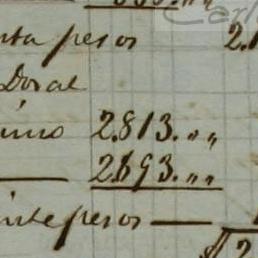 nta pesos 2.1
Doral
imo 2.813.,,
2.693.,,
inte pesos
$ 2